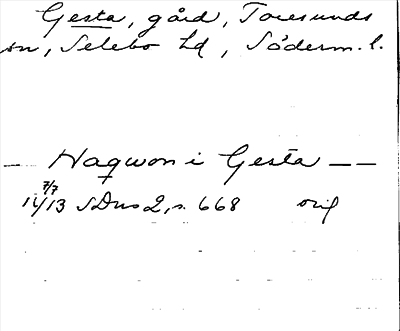 Gesta, gård, Toresunds
sn, Selebo hd, Söderm. l.
— Haqwon i Gesta — —
7/7
1413 SDns 2, s. 668 orig